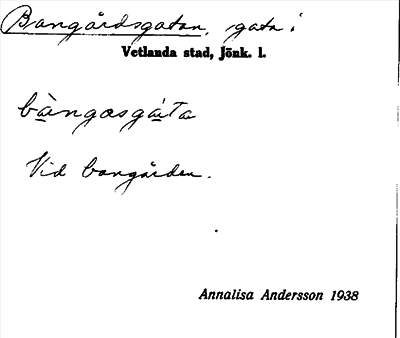 Bangårdsgatan, gata i
Vetlanda stad, Jönk. l.
bàngosgá̀ta
Vid bangården.
Annalisa Andersson 1938